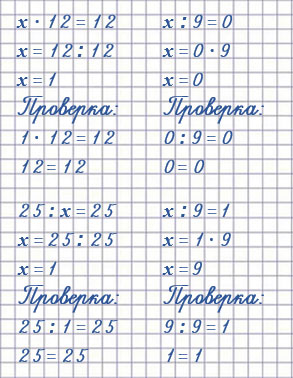 x · 12 = 12
x = 12 : 12
x = 1
Проверка:
1 · 12 = 12
12 = 12
x : 9 = 0
x = 0 · 9
x = 0
Проверка:
0 : 9 = 0
0 = 0
25 : x = 25
x = 25 : 25
x = 1
Проверка:
25 : 1 = 25
25 = 25
x : 9 = 1
x = 1 · 9
x = 9
Проверка:
9 : 9 = 1
1 = 1